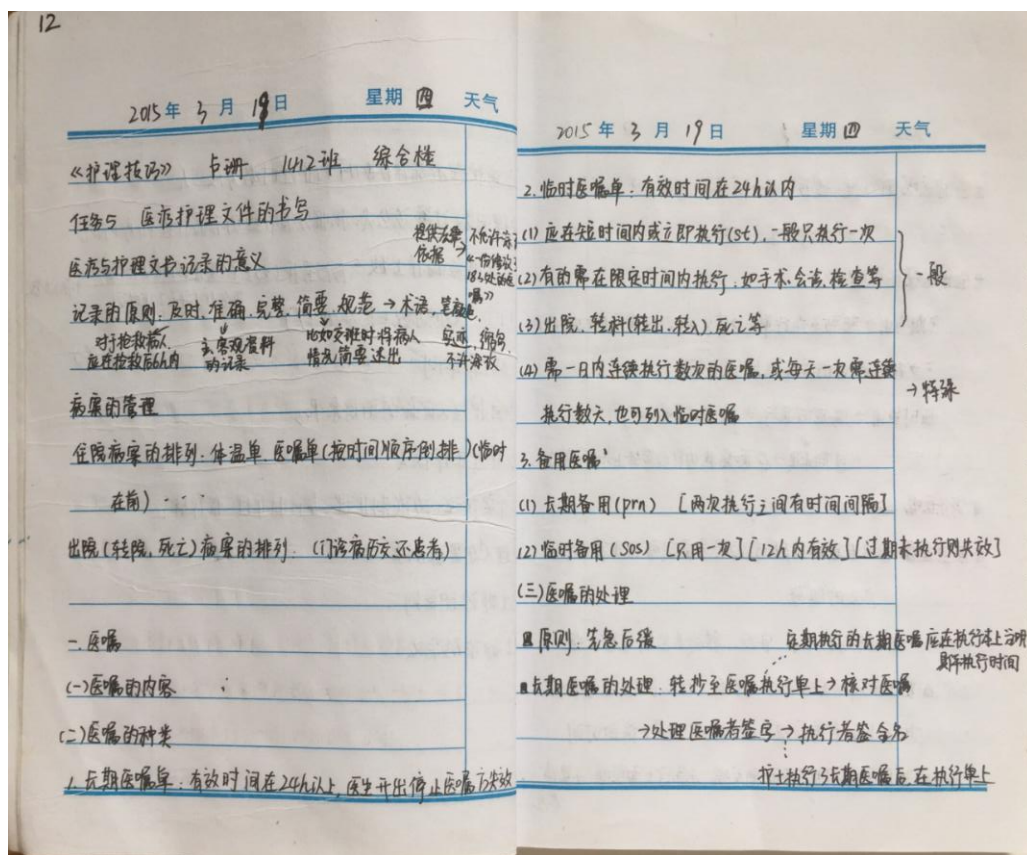 12
2015年 3月 19日 星期四 天气
《护理技巧》 卢珊 1412班 综合楼
任务5 医疗护理文件的书写
提供法律
依据
不允许涂
医疗与护理文书记录的意义
记录的原则：及时、准确、完整、简要、规范→术语，笔颜色，
对于抢救病人，
应在抢救后6h内
主、客观资料
的记录
比如交班时将病人
情况简要述出
实事，缩写
不许涂改
病案的管理
住院病案的排列：体温单 医嘱单(按时间顺序倒排)(临时
在前)
出院(转院，死亡)病案的排列：(门诊病历交还患者)
一、医嘱
(一)医嘱的内容
(二)医嘱的种类
1.长期医嘱单：有效时间在24h以上，医生开出停止医嘱方失效
2015年 3月 19日 星期四 天气
2.临时医嘱单：有效时间在24h以内
(1)应在短时间内或立即执行(st)，一般只执行一次
(2)有的需在限定时间内执行，如手术、会诊、检查等
一般
(3)出院、转科(转出、转入)、死亡等
(4)需一日内连续执行数次的医嘱，或每天一次需连续
→特殊
执行数天，也可列入临时医嘱
3.备用医嘱
(1)长期备用(prn) [两次执行之间有时间间隔]
(2)临时备用(sos) [只用一次][12h内有效][过期未执行则失效]
(三)医嘱的处理
原则：先急后缓
定期执行的长期医嘱应在执行本上注明
具体执行时间
长期医嘱的处理：转抄至医嘱执行单上→核对医嘱
→处理医嘱者签字→执行者签全名
护士执行了长期医嘱后，在执行单上